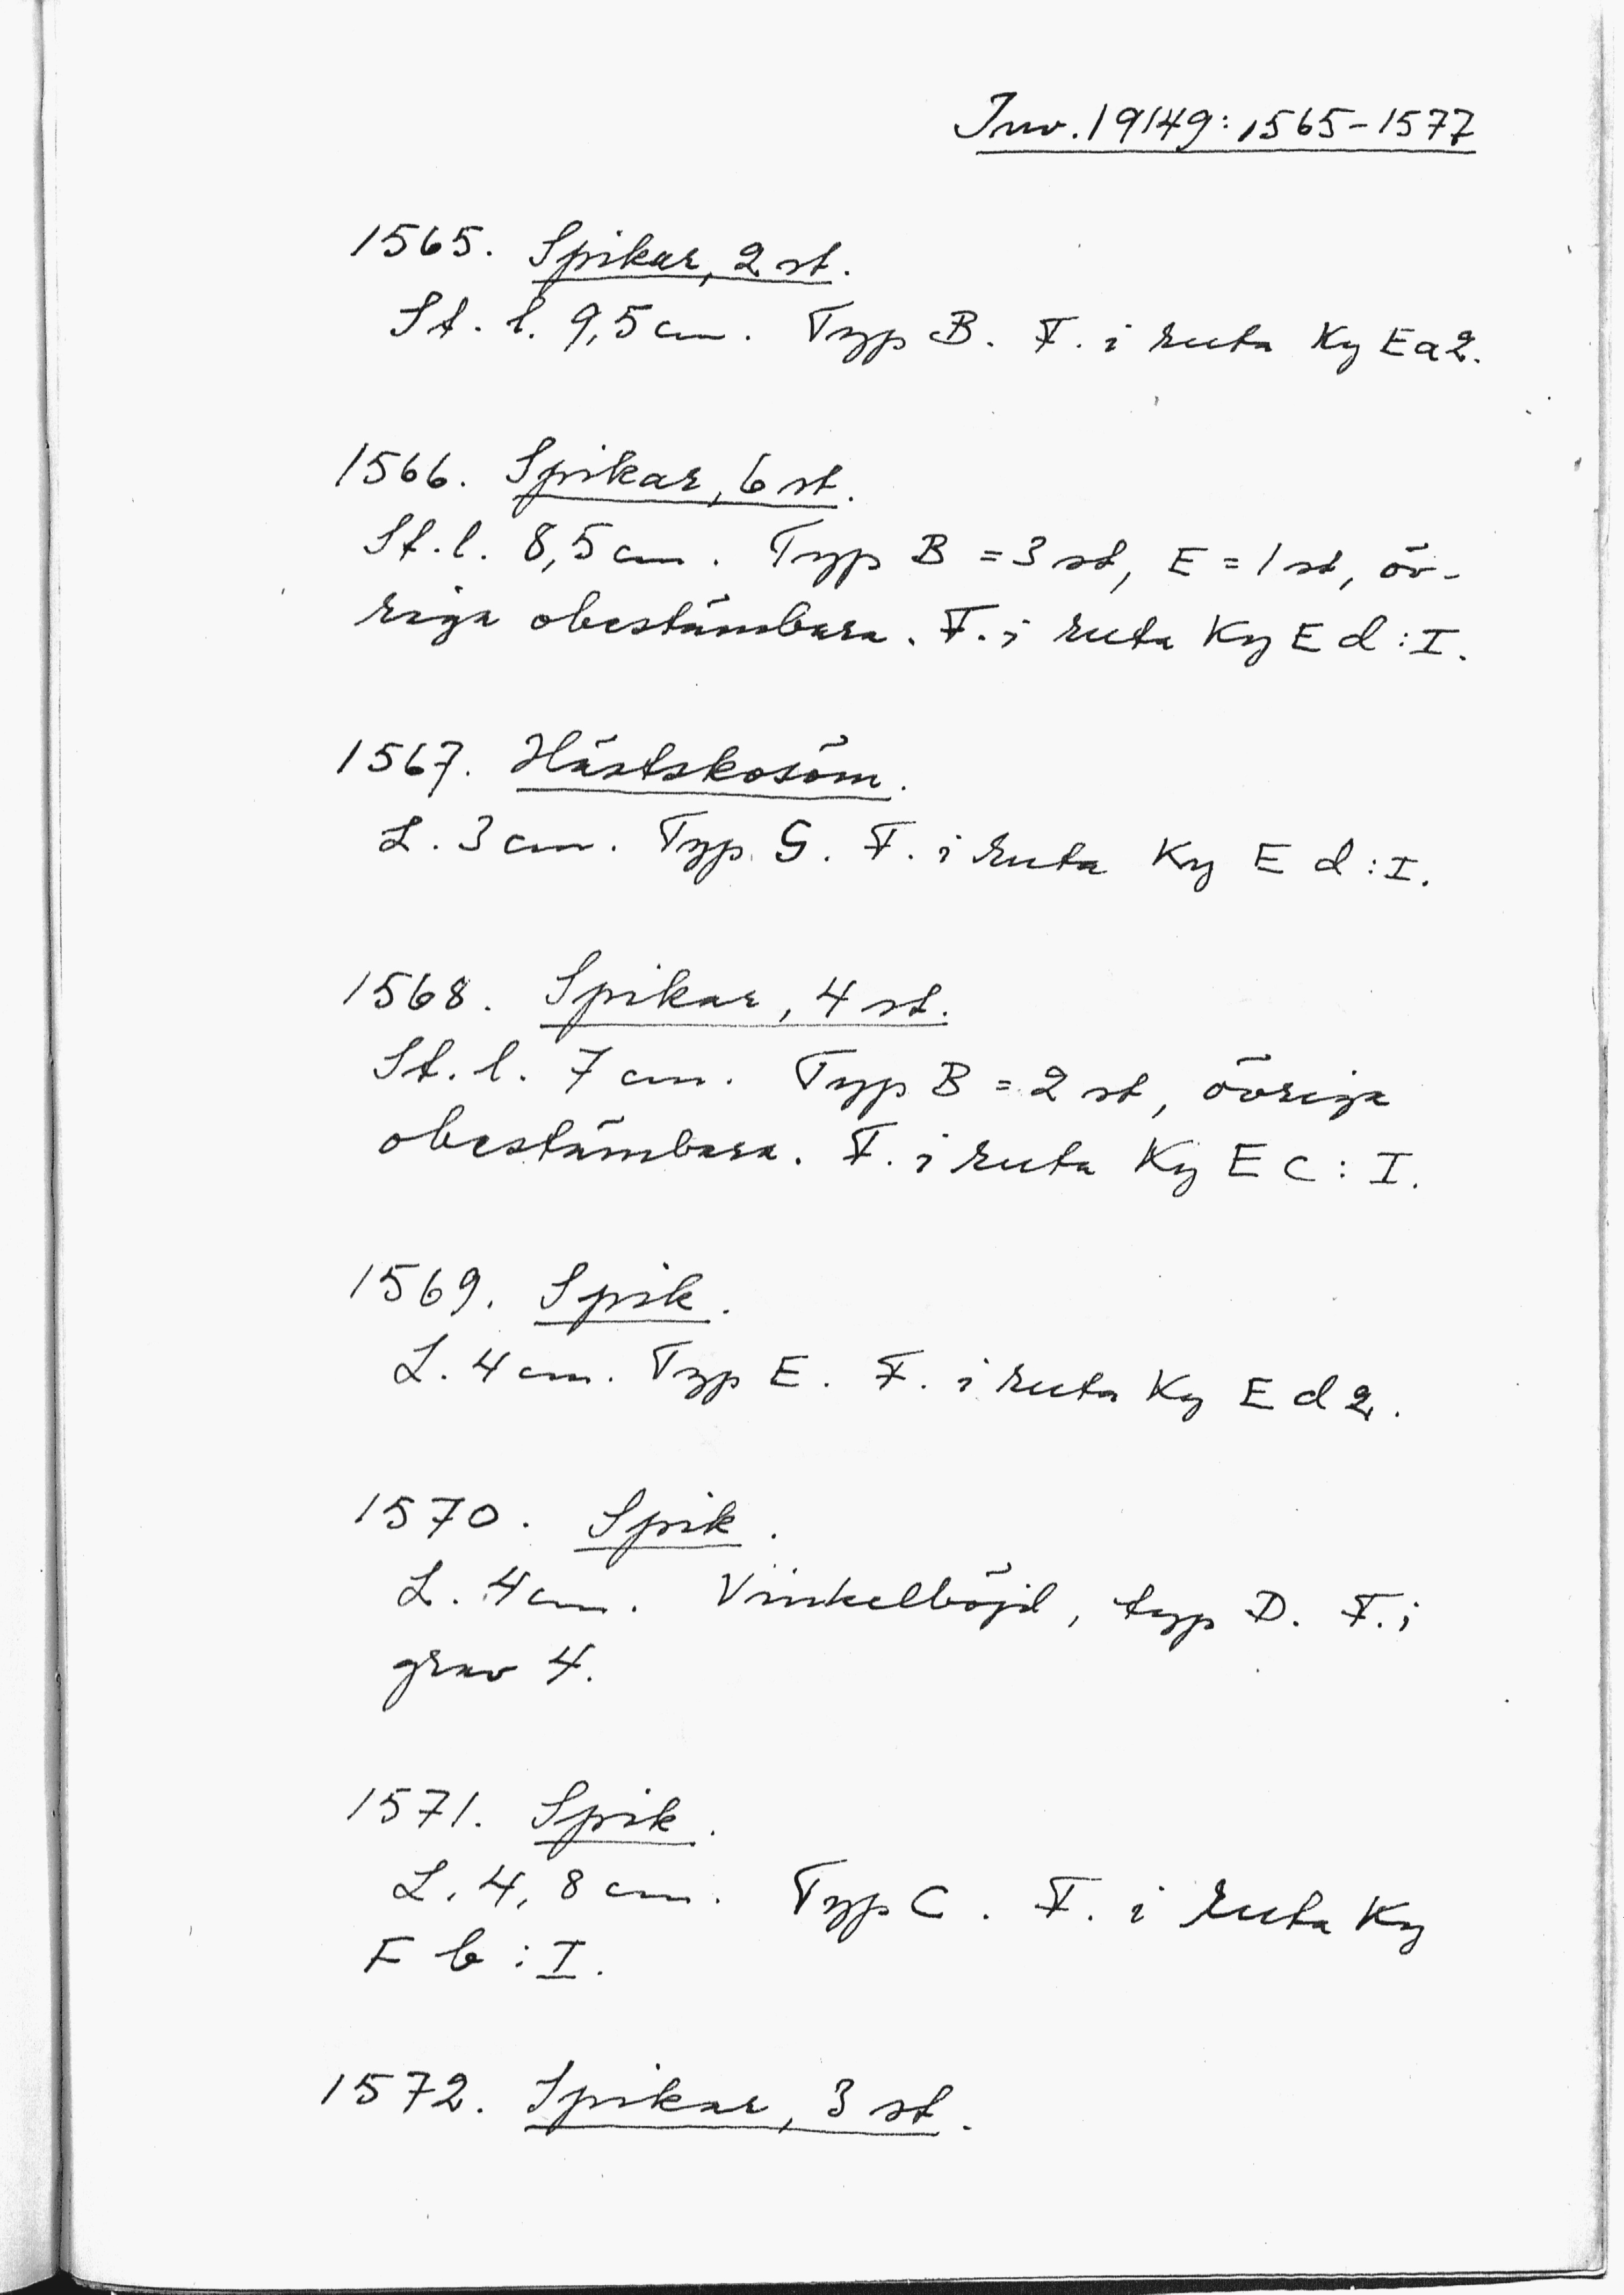 Inv. 19149: 1565-1577
1565. Spikar, 2 st.
St. l. 9,5 cm. Typ B. F. i ruta Ky E a 2.
1566. Spikar, 6 st.
St. l. 8,5 cm. Typ B = 3 st, E = 1 st, öv-
riga obestämbara. F. i ruta Ky E d : I.
1567. Hästskosöm.
L. 3 cm. Typ G. F. i ruta Ky E d : I.
1568. Spikar, 4 st.
St. l. 7 cm. Typ B = 2 st, övriga
obestämbara. F. i ruta Ky E C : I.
1569. Spik.
L. 4 cm. Typ E. F. i ruta Ky E d 2.
1570. Spik.
L. 4 cm. Vinkelböjd, typ D. F. i
grav 4.
1571. Spik.
L. 4,8 cm. Typ C. F. i ruta Ky
F b : I.
1572. Spikar, 3 st.